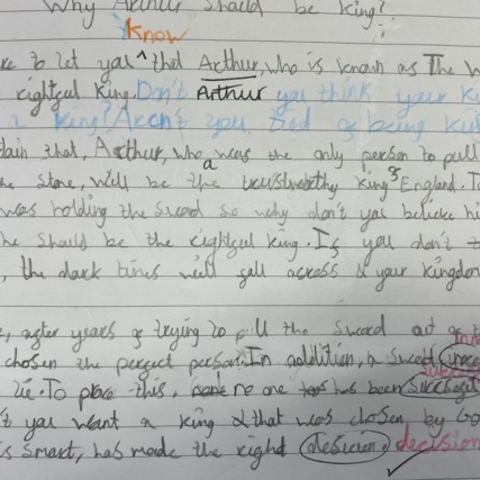 Why Arthur should be king?
know
re to let you ^ that Arthur, who is known as The W
rightful king. Don't Arthur you think your ki
a king? Aren't you tied of being
tain that, Arthur, who was the only person to pull
a
he stone, will be the trustworthy king of England. T
was holding the sword so why don't you believe hi
he should be the rightful king. If you don't
, the dark times will fall across & your kingdom
e, after years of trying to pull the sword out of
chosen the perfect person. In addition, a sword
lie. To prove this, no one has been
t you want a king that was chosen by Go
is smart, has made the right desicien. decision